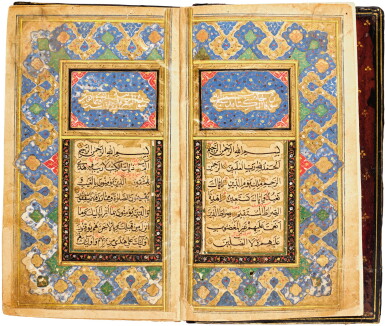 بسم الله الرحمن الرحيم
الحمد لله رب العالمين
الرحمن الرحيم ملك يوم الدين
اياك نعبد واياك نستعين اهدنا
الصراط المستقيم صراط الذين
انعمت عليهم غير المغضوب
عليهم ولا الضالين
بسم الله الرحمن الرحيم
الم ذلك الكتاب لا ريب فيه هدى
للمتقين الذين يؤمنون بالغيب
ويقيمون الصلوة ومما رزقناهم ينفقون
والذين يؤمنون بما انزل اليك وما
انزل من قبلك وبالاخرة هم يوقنون
اولئك على هدى من ربهم